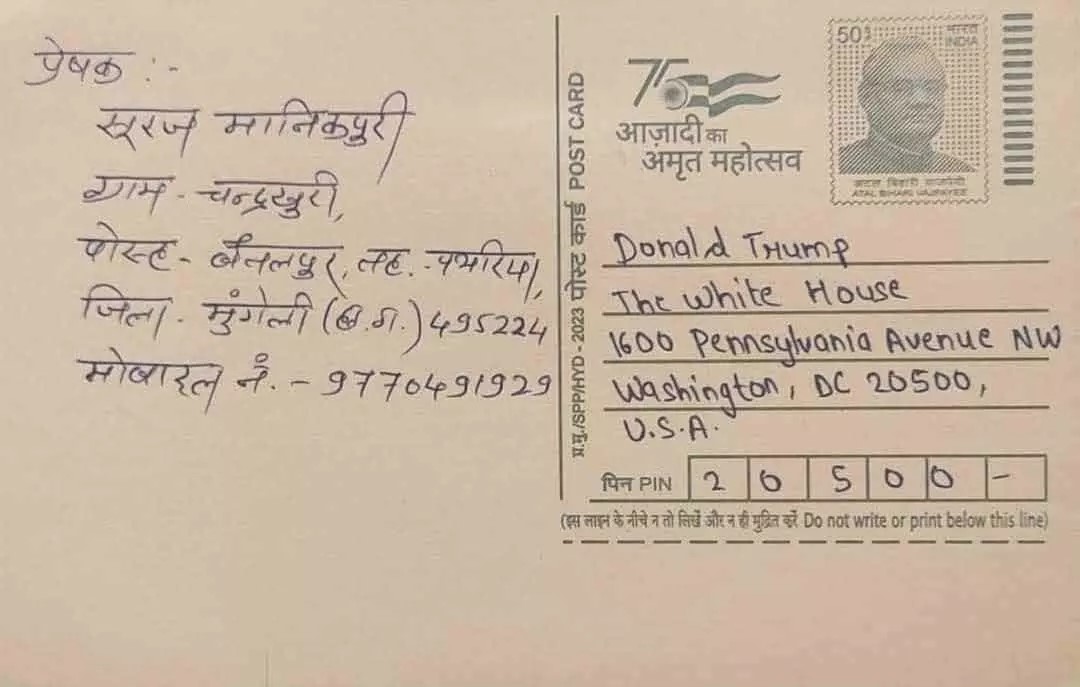 प्रेषक :-
सूरज मानिकपुरी
ग्राम - चन्द्रखुरी,
पोस्ट - बैतलपुर, तह. - पथरिया,
जिला - मुंगेली (छ.ग.) 495224
मोबाइल नं. - 9770491929
प्र.मु./SPP/HYD - 2023 पोस्ट कार्ड POST CARD
75
आज़ादी का
अमृत महोत्सव
50
भारत
INDIA
अटल बिहारी वाजपेयी
ATAL BIHARI VAJPAYEE
Donald Trump
The White House
1600 Pennsylvania Avenue NW
Washington, DC 20500,
U.S.A.
पिन PIN 2 0 5 0 0 -
(इस लाइन के नीचे न तो लिखें और न ही मुद्रित करें Do not write or print below this line)